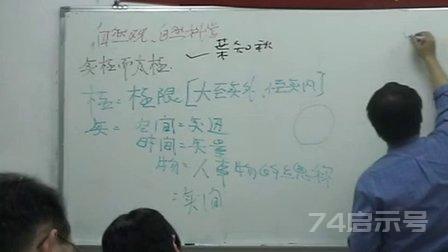 自然观、自然科学
一叶知秋
无极而太极
极=极限[大至无外、小至无内]
无=空间=无边
时间=无量
物=人事物的总称
=无间
74启示号